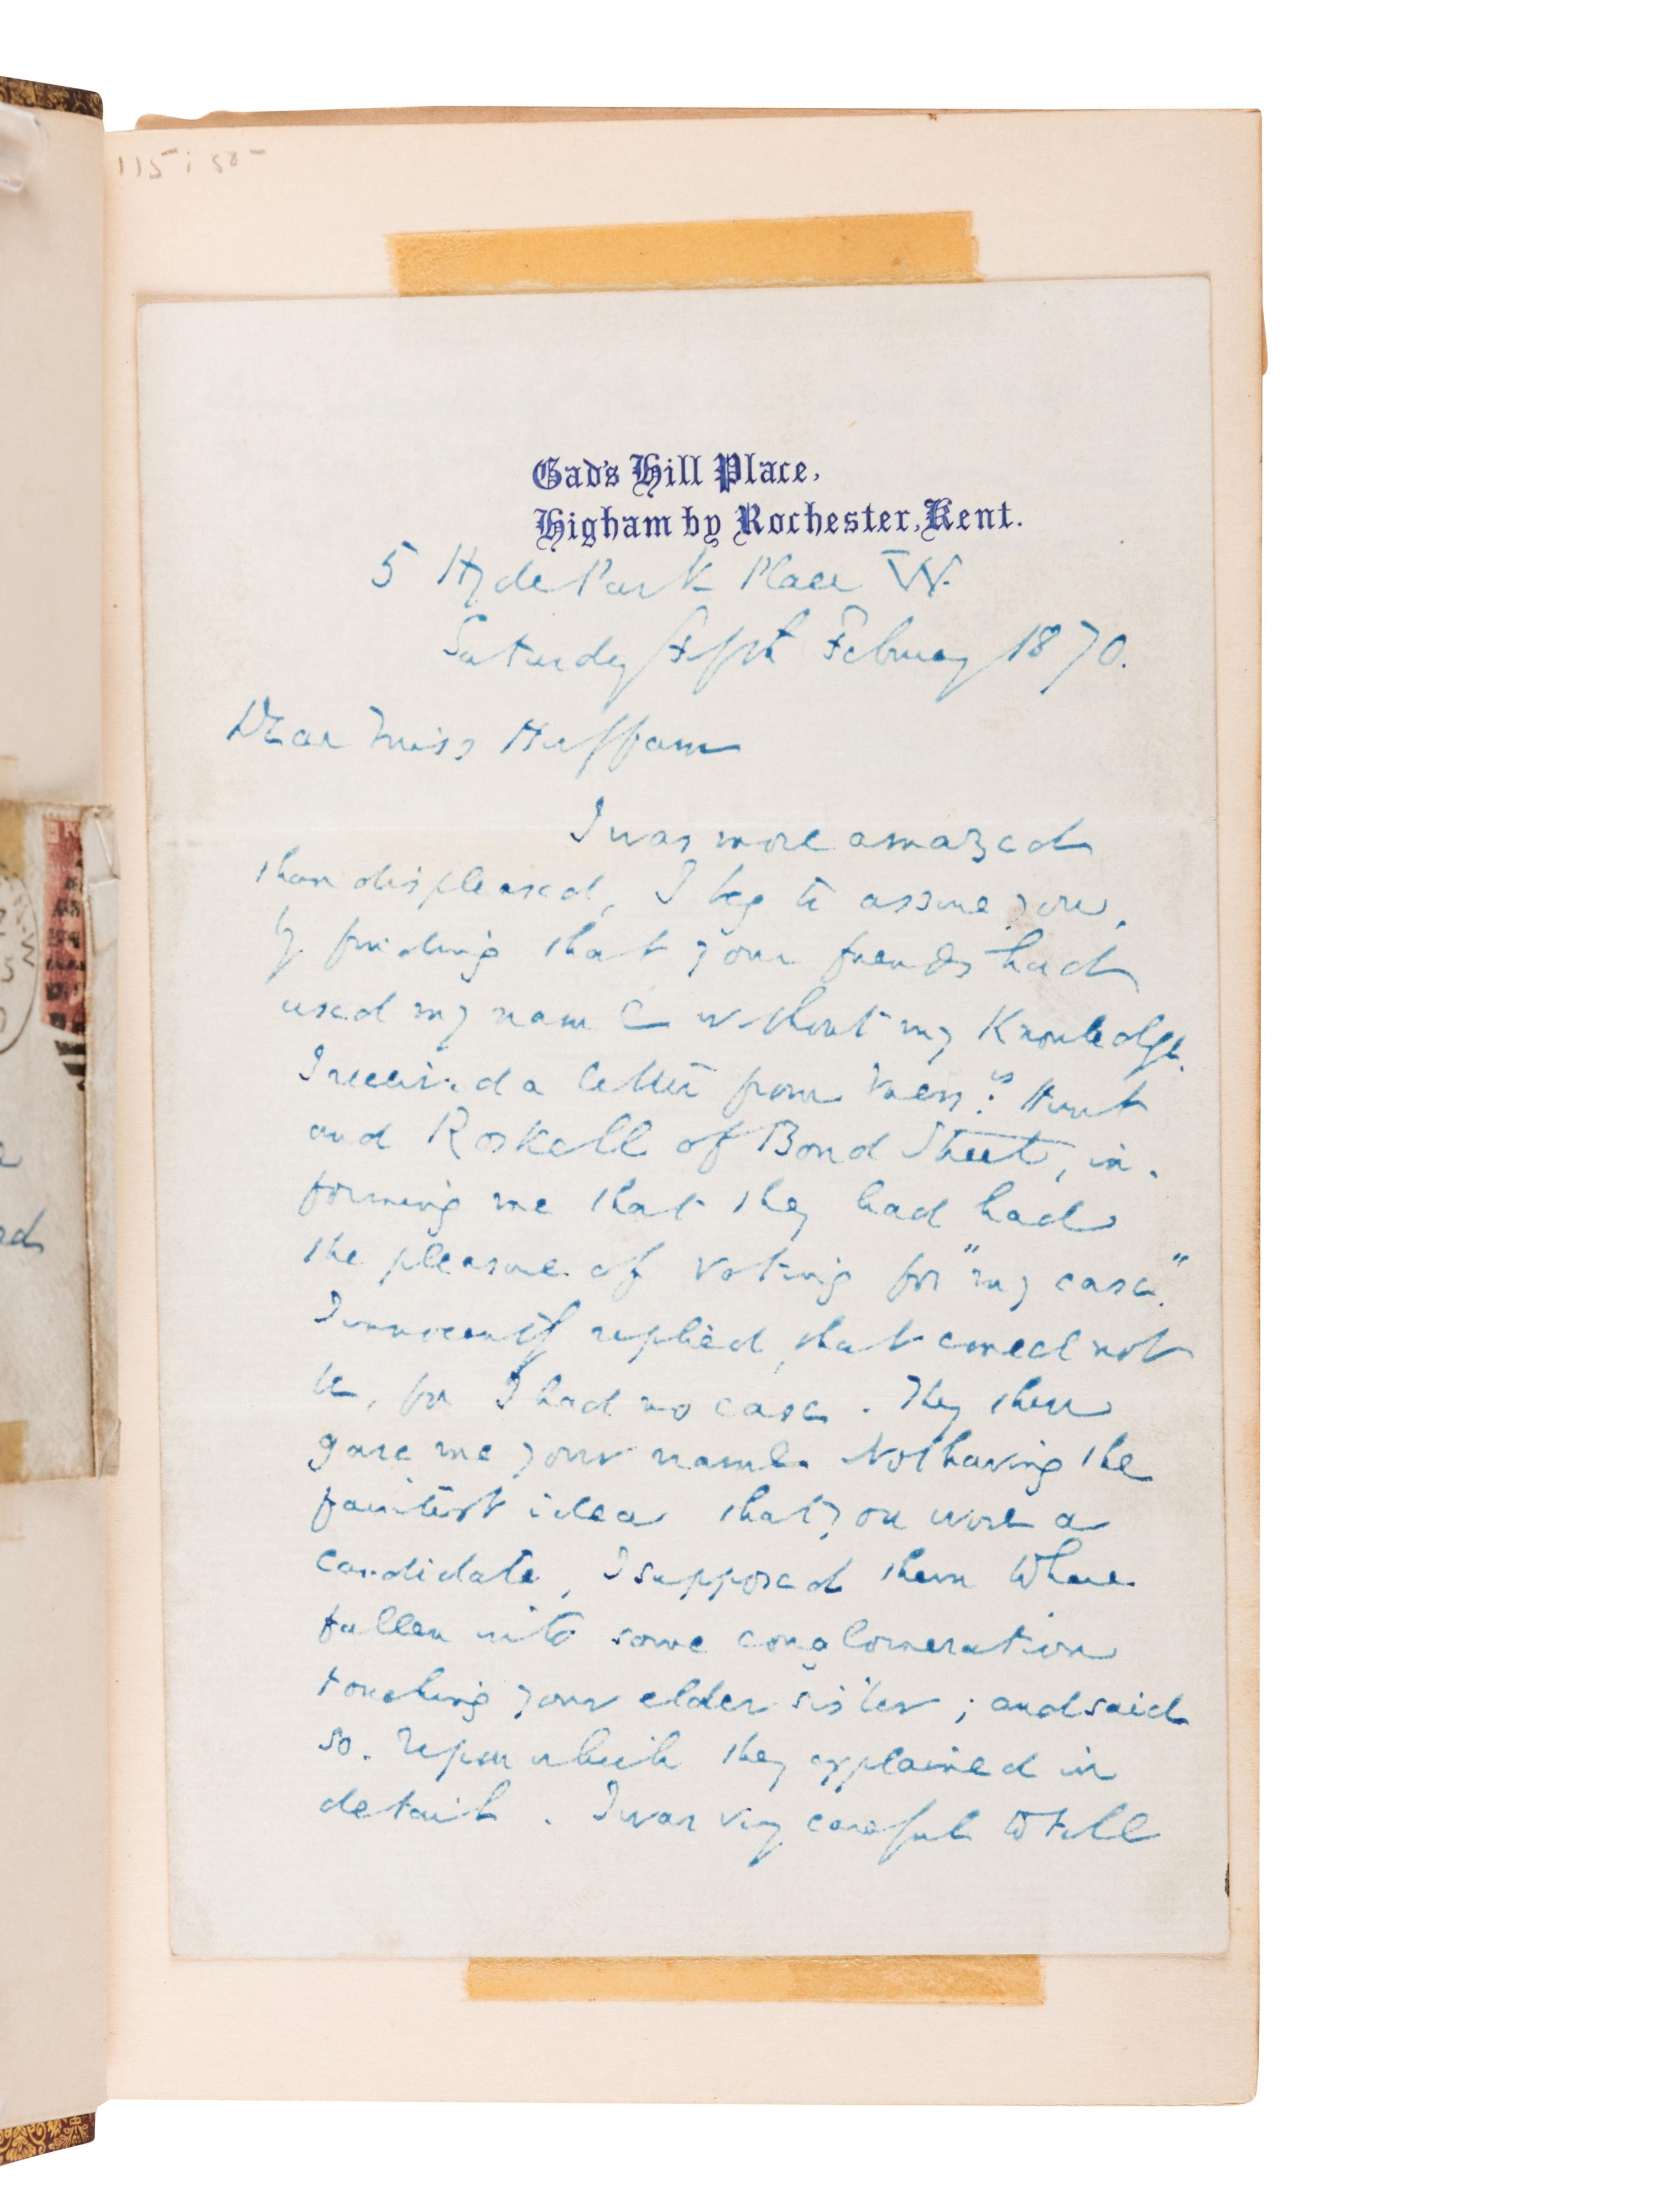 115 : 58 -
Gad's Hill Place,
Higham by Rochester, Kent.
5 Hyde Park Place W.
Saturday Fifth February 1870.
Dear Miss Huffam
I was more amazed
than displeased, I beg to assure you,
by finding that your friends had
used my name without my Knowledge.
I received a letter from Mess:rs Hunt
and Roskell of Bond Street, in-
forming me that they had had
the pleasure of voting for "my case."
I innocently replied, that could not
be, for I had no case. They then
gave me your name. Not having the
faintest idea that you were a
candidate, I supposed them to have
fallen into some conglomeration
touching your elder sister; and said
so. Upon which they explained in
detail. I was very careful to tell